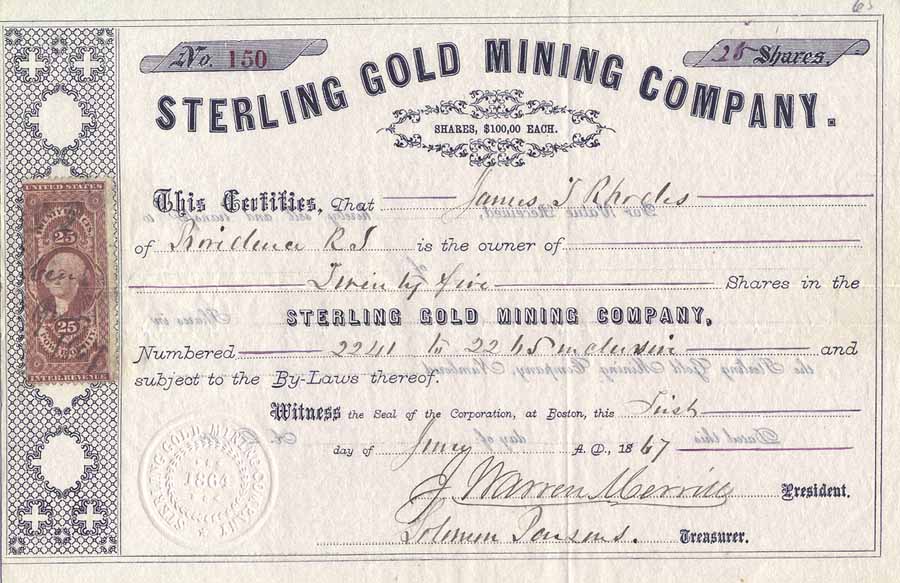 No. 150
25 Shares.
STERLING GOLD MINING COMPANY.
SHARES, $100,00 EACH.
This Certifies, That James T Rhodes
of Providence R I is the owner of
Twenty five Shares in the
STERLING GOLD MINING COMPANY,
Numbered 2241 to 2265 inclusive and
subject to the By-Laws thereof.
Witness the Seal of the Corporation, at Boston, this First
day of A. D., 1867
J. Warren Merrill President.
Solomon Parsons. Treasurer.
UNITED STATES
25
25
INTER. REVENUE
STERLING GOLD MINING COMPANY
1864